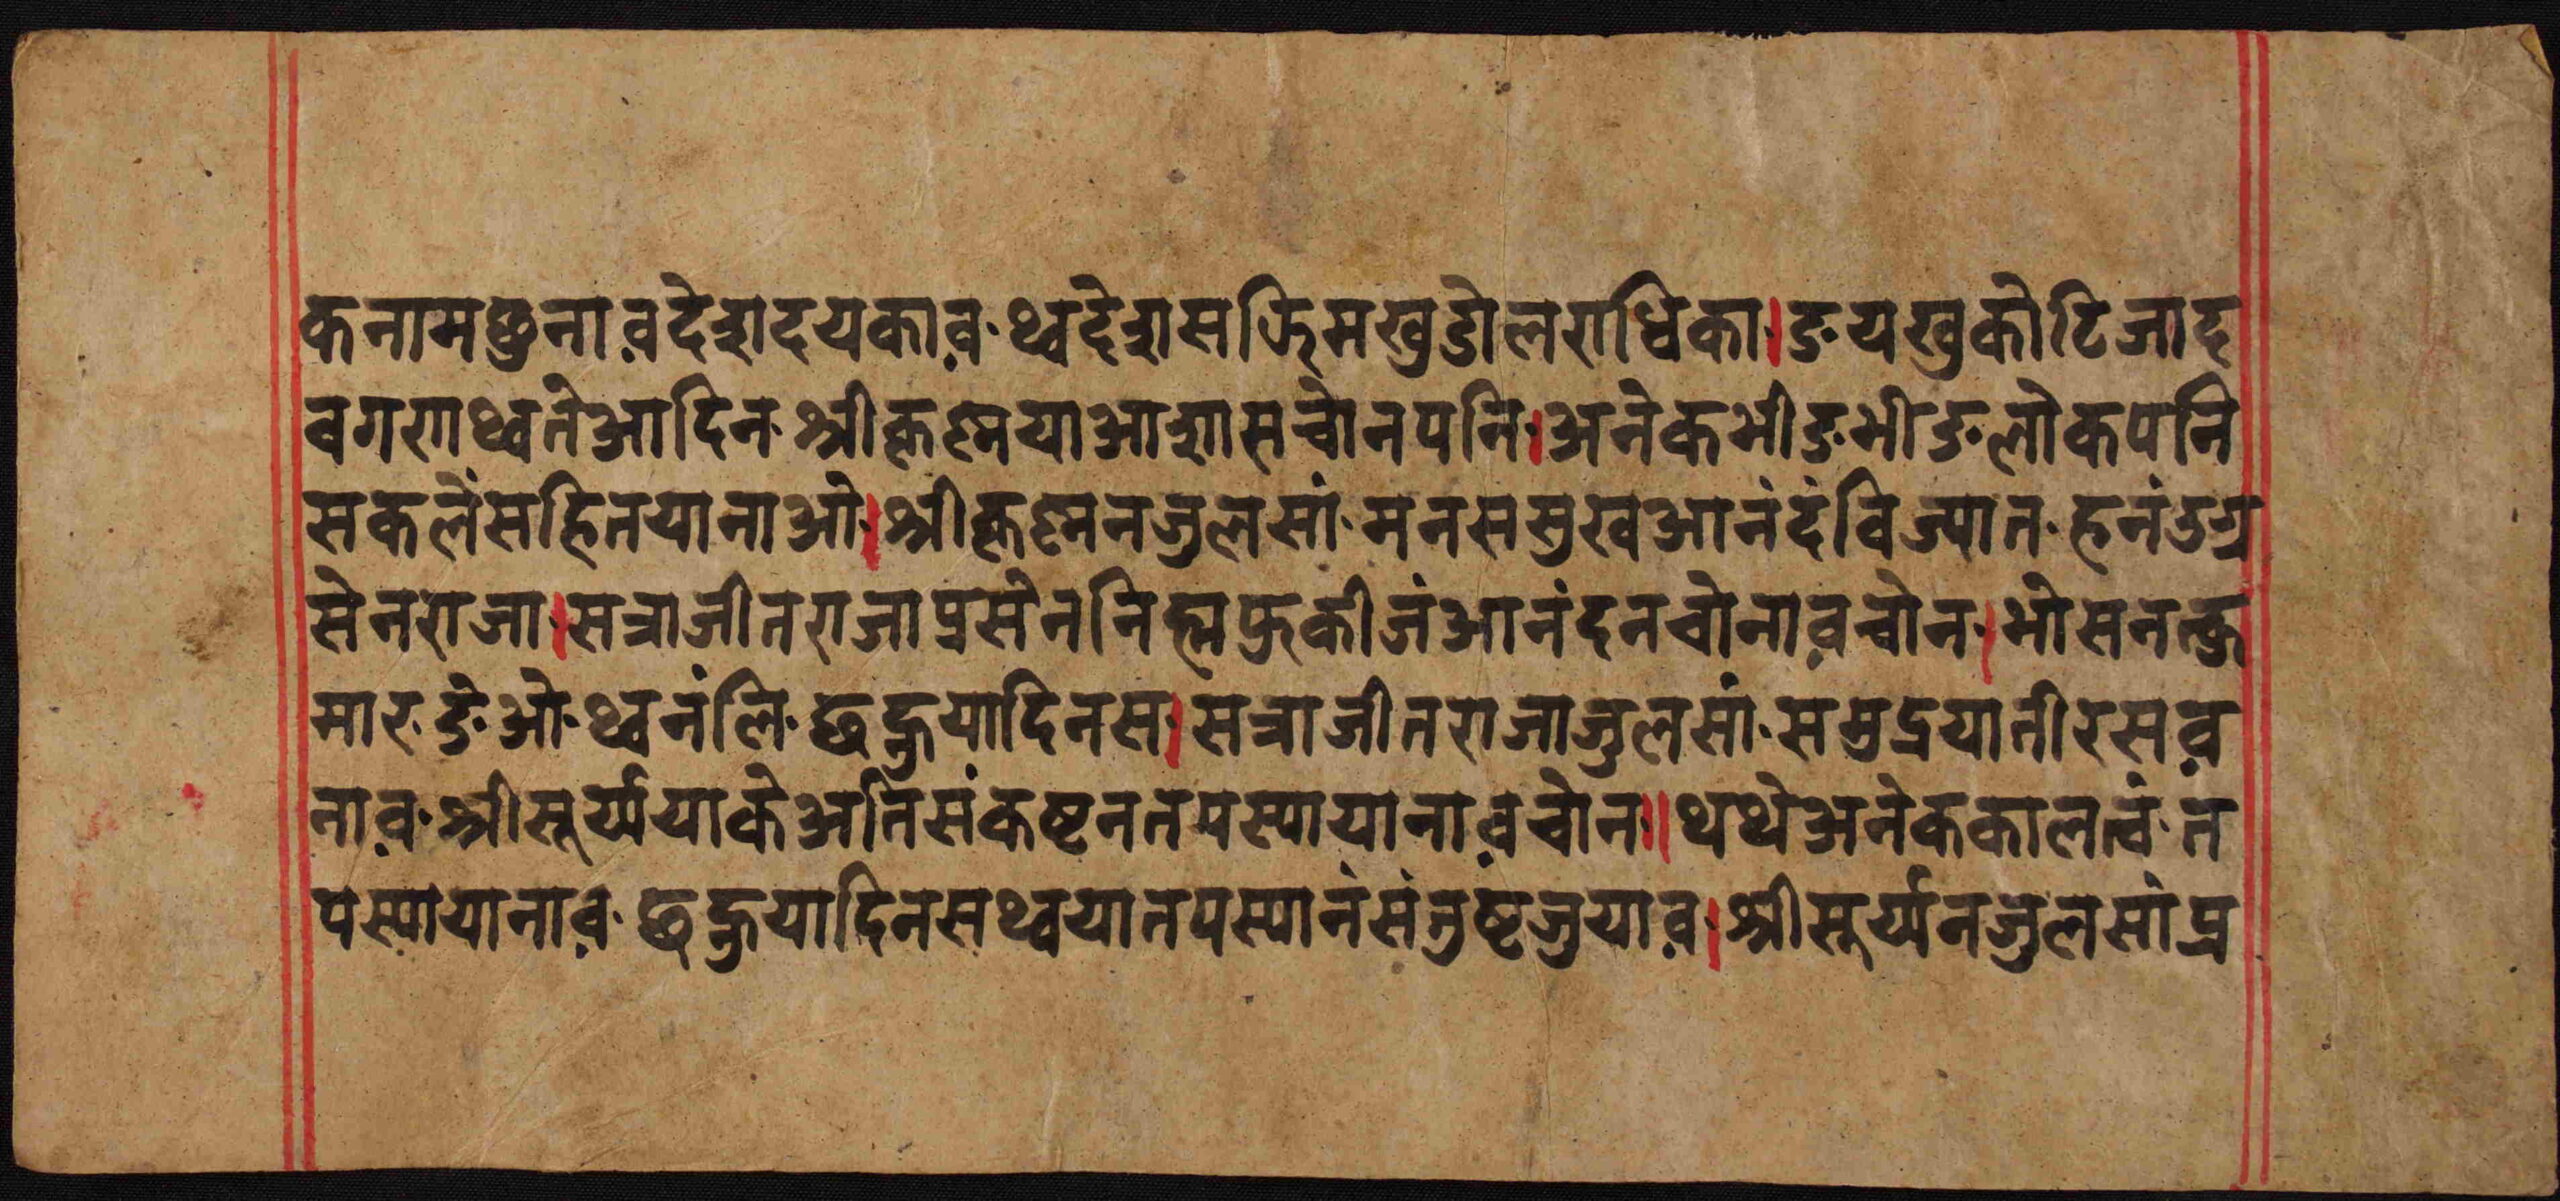 कनामछुनाव़देशदयकाव़·थ्वदेशसझिमखुडोलराधिका·।ङयखुकोटिजाद
वगराथ्वतेआदिन·श्रीकृष्णयाआज्ञासचोनपनि·।अनेकभीङभीङलोकपनि
सकलेंसहितयानाओ·।श्रीकृष्णनजुलसां·मनससुखआनंदंविज्यात·हनंउग्र
सेनराजा·।सत्राजीतराजाप्रसेननिह्मफुकीजंआनंदनचोनाव़चोन·।भोसनत्कु
मार·ङेओ·थ्वनंलि·छह्नुयादिनस·।सत्राजीतराजाजुलसां·समुद्रयातीरसव़
नाव़·श्रीसूर्य्ययाकेअतिसंकष्टनतपस्यायानाव़चोन·॥थथेअनेककालत्वं·त
पस्यायानाव़·छह्नुयादिनसथ्वयातपस्यानंसंतुष्टजुयाव़·।श्रीसूर्य्यनजुलसांप्र